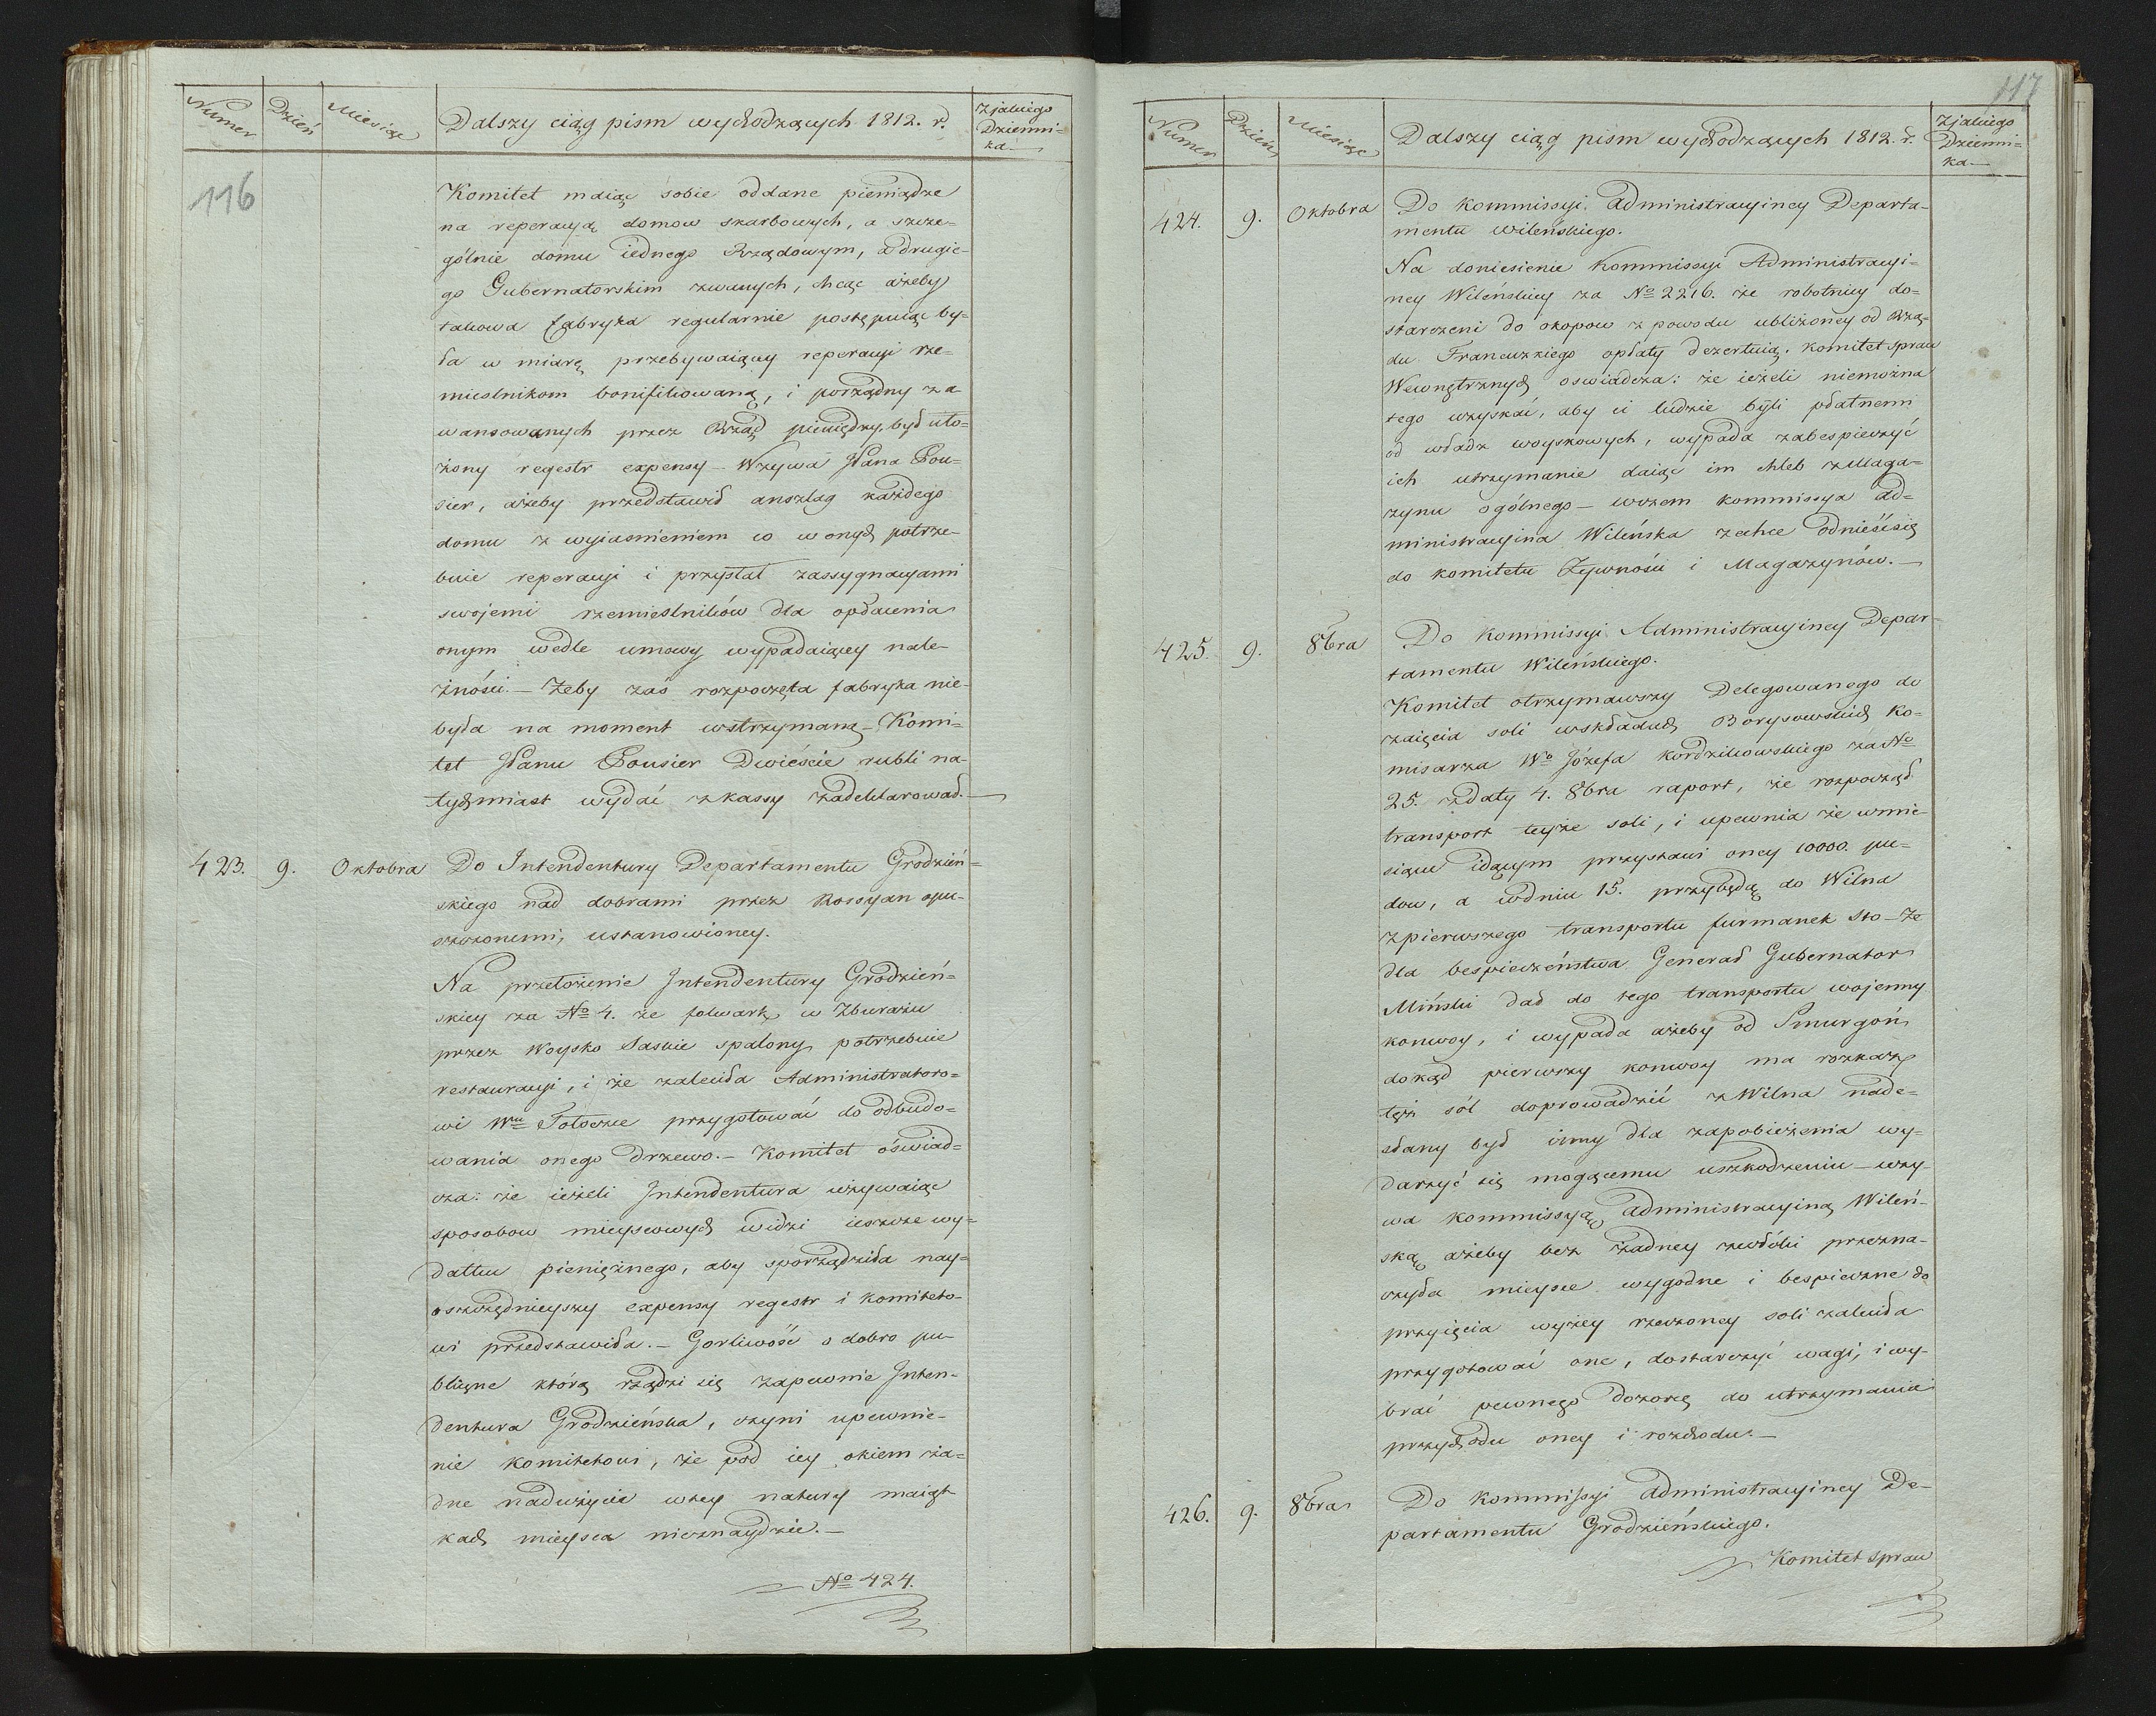 Numer
Dzień
Miesiąc
Dalszy ciąg pism wychodzących 1812. r.
Zjakiego
Dzienni=
ka
116
Komitet maiąc sobie oddane pieniądze
na reperacyą domow skarbowych, a szcze=
gólnie domu iednego Rządowym, a drugie=
go Gubernatorskim zwanych, chcąc ażeby
takowa fabryka regularnie postępuiąc by=
ła w miarę przebywaiącey reperacyi rze=
mieslnikom bonifikowaną, i porządny za
wansowanych przez Rząd pieniędzy, był uło=
żony regestr expensy – Wzywa JPana Pou=
sier, ażeby przedstawił anszlag każdego
domu z wyiasnieniem co w onych potrze=
buie reperacyi i przysłał zassygnacyami
swojemi rzemieslników dla opłacenia
onym wedle umowy wypadaiącey nale=
żności. – Żeby zaś rozpoczęta fabryka nie=
była na moment wstrzymaną – Komi=
tet JPanu Pousier Dwieście rubli na=
tychmiast wydać z kassy zadeklarował. –
423. 9. Oktobra Do Intendentury Departamentu Grodzień=
skiego nad dobrami przez Rossyan opu=
szczonemi, ustanowioney.
Na przełożenie Intendentury Grodzień=
skiey za No 4. że folwark w Zburażu
przez Woysko Saskie spalony potrzebuie
restauracyi, i że zaleciła Administratoro=
wi Wmu Tołoczce przygotować do odbudo=
wania onego drzewo. – Komitet oświad=
cza: że ieżeli Intendentura używaiąc
sposobow mieyscowych widzi ieszcze wy=
datku pieniężnego, aby sporządziła nay=
oszczędnieyszy expensy regestr i Komiteto=
wi przedstawiła. – Gorliwość o dobro pu=
bliczne którą rządzi się zapewnie Inten=
dentura Grodzieńska, czyni upewnie=
nie komitetowi, że pod iey okiem ża=
dne nadużycie w tey natury maiąt
kach mieysca nieznaydzie. –
No 424.
117
Numer
Dzień
Miesiąc
Dalszy ciąg pism wychodzących 1812. r.
Zjakiego
Dzienni=
ka
424. 9. Oktobra Do Kommissyi Administracyiney Departa=
mentu Wileńskiego.
Na doniesienie Kommissyi Administracyi=
ney Wileńskiey za No 2216. że robotnicy do=
starczeni do okopow z powodu ubliżoney od Rzą=
du Francuzkiego opłaty dezertuią. Komitet spraw
Wewnętrznych oswiadcza: że ieżeli niemożna
tego uzyskać, aby ci ludzie byli płatnemi
od władz woyskowych, wypada zabespieczyć
ich utrzymanie daiąc im chleb z Maga=
zynu ogólnego – w czem Kommissya Ad=
ministracyina Wileńska zechce odnieść się
do komitetu Żywności i Magazynów. –
425. 9. 8bra Do Kommissyi Administracyiney Depar=
tamentu Wileńskiego.
Komitet otrzymawszy Delegowanego do
zaięcia soli w składach Borysowskich Ko=
misarza Wo Józefa Kordzikowskiego za No
25. z daty 4. 8bra raport, że rozpoczął
transport teyże soli, i upewnia że w mie=
siącu idącym przystawi oney 10000. pu=
dow, a w dniu 15. przybędą do Wilna
z pierwszego transportu furmanek sto – Że
dla bespieczeństwa Generał Gubernator
Miński dał do tego transportu wojenny
konwoy, i wypada ażeby od Smurgoń
dokąd pierwszy konwoy ma rozkaz
tęż sól doprowadzić z Wilna nade=
słany był inny dla zapobieżenia wy=
darzyć się mogącemu uszkodzeniu – wzy=
wa Kommissyą Administracyiną Wileń=
ską ażeby bez żadney zwłóki przezna=
czyła mieysce wygodne i bespieczne do
przyięcia wyżey rzeczoney soli zaleciła
przygotować one, dostarczyć wagi, i wy=
brać pewnego dozorcę do utrzymania
przychodu oney i rozchodu. –
426. 9. 8bra Do Kommissyi Administracyiney De=
partamentu Grodzieńskiego.
Komitet spraw